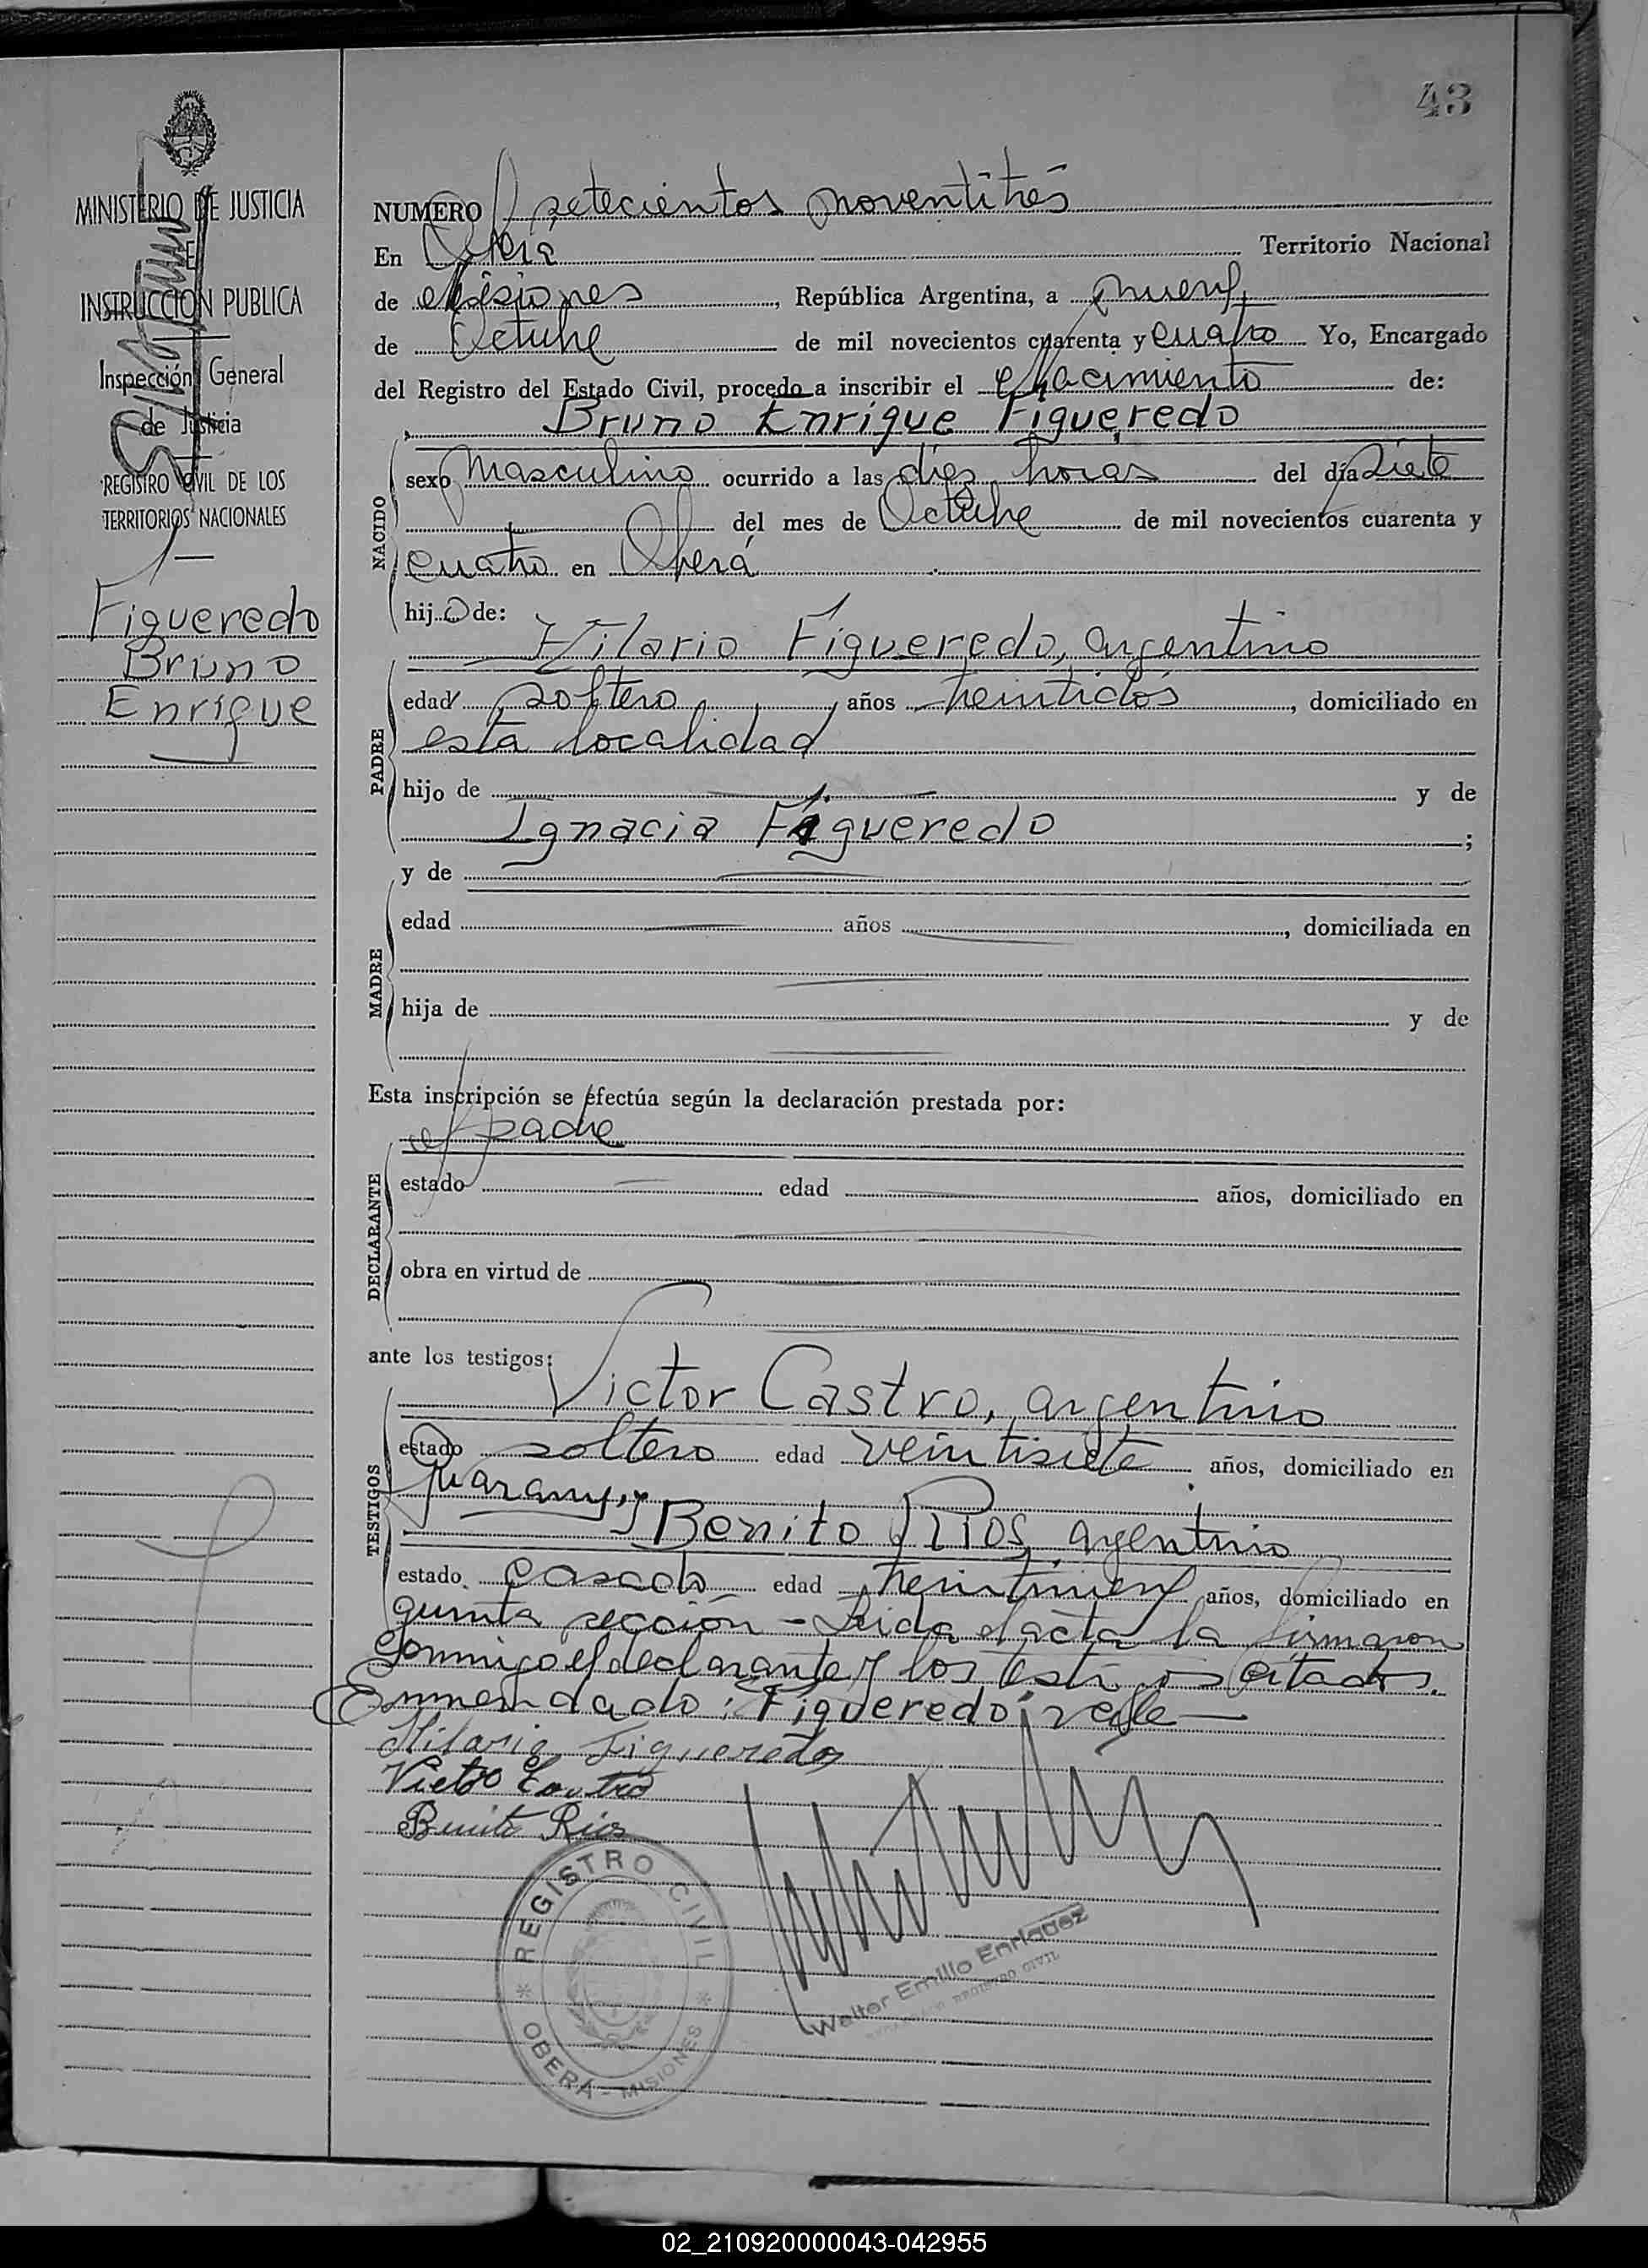 43
MINISTERIO DE JUSTICIA
E
INSTRUCCION PUBLICA
Inspección General
de Justicia
REGISTRO CIVIL DE LOS
TERRITORIOS NACIONALES
Figueredo
Bruno
Enrique
NUMERO setecientos noventitrés
En Oberá Territorio Nacional
de Misiones, República Argentina, a nueve
de Octubre de mil novecientos cuarenta y cuatro Yo, Encargado
del Registro del Estado Civil, procedo a inscribir el Nacimiento de:
Bruno Enrique Figueredo
NACIDO
sexo Masculino ocurrido a las diez horas del día siete
del mes de Octubre de mil novecientos cuarenta y
cuatro en Oberá
hijo de:
Hilario Figueredo, argentino
PADRE
edad soltero, años veintidós, domiciliado en
esta localidad
hijo de y de
Ignacia Figueredo;
y de
MADRE
edad años, domiciliada en
hija de y de
Esta inscripción se efectúa según la declaración prestada por:
el padre
DECLARANTE
estado edad años, domiciliado en
obra en virtud de
ante los testigos:
Victor Castro, argentino
TESTIGOS
estado soltero edad veintisiete años, domiciliado en
Guarany, y
Benito Rios, argentino
estado casado edad veintinueve años, domiciliado en
quinta sección - Leida el acta la firmaron
conmigo el declarante y los testigos citados.
Enmendado: Figueredo; vale—
Hilario Figueredo
Victor Castro
Benito Rios
REGISTRO CIVIL
OBERÁ - MISIONES
Walter Emilio Enriquez
REGISTRO CIVIL
02_210920000043-042955